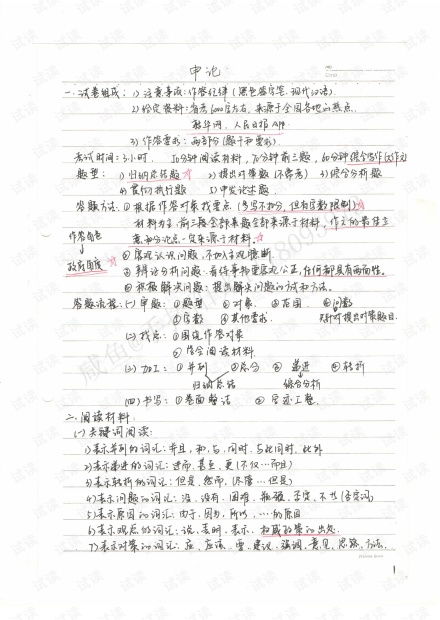 申论
一. 试卷组成: 1) 注意事项: 作答纪律 (黑色签字笔. 现代汉语)
2) 给定资料: 省考6000字左右, 来源于全国各地的热点.
新华网 人民日报APP
3) 作答要求: 两部分 (题干和要求).
考试时间: 3小时. 50分钟阅读材料, 70分钟前三题, 60分钟
题型: 1) 归纳总结题☆ 2) 提出对策题 (不常考) 3) 综合分析题
4) 贯彻执行题 5) 申发论述题.
答题方法: ① 根据作答对象找要点 (多写不扣分, 但有字数限制)
材料为主: 前三题全部来源于材料, 作文的
和分论点一定来源于材料.☆
作答角色
↓
政府角度☆
② 客观认识问题, 不加入主观臆断
③ 辩证分析问题: 看待事物要客观公正, 任何都具有两面性.
④ 积极解决问题: 提出解决问题的方式和方法.
答题流程: (一) 审题: ①题型 ②对象 ③范围 ④问数
⑤字数 ⑥其他要求. 只针对提出对策题目.
(二) 找点: ①围绕作答对象
②结合阅读材料.
(三) 加工: ①并列 ②总分 ③递进 ④转折
归纳总结 综合分析
(四) 书写: ①卷面整洁 ②字迹工整.
二. 阅读材料:
(一) 关键词阅读:
1) 表示并列的词汇: 并且, 和, 与, 同时, 与此同时, 此外
2) 表示递进的词汇: 进而, 甚至, 更 (不仅…而且)
3) 表示转折的词汇: 但是, 然而, (尽管…但是)
4) 表示问题的词汇: 没, 没有, 困难, 瓶颈, 不当
5) 表示原因的词汇: 由于, 因为, 所以, …的原因
6) 表示观点的词汇: 说, 表明, 表示, 权威政策的出处.
7) 表示对策的词汇: 应, 应该, 需, 建议, 强调, 意见, 思路, 方法.
1